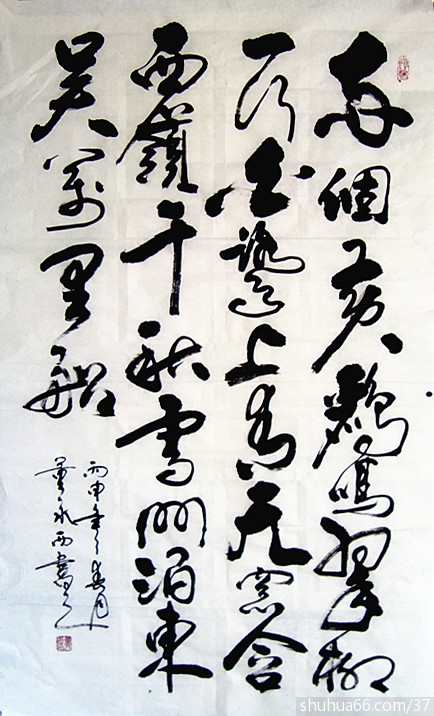 兩個黃鸝鳴翠柳
一行白鷺上青天窓含
西嶺千秋雪門泊東
吳萬里船
丙申年春月
董永西書
shuhua66.com/37